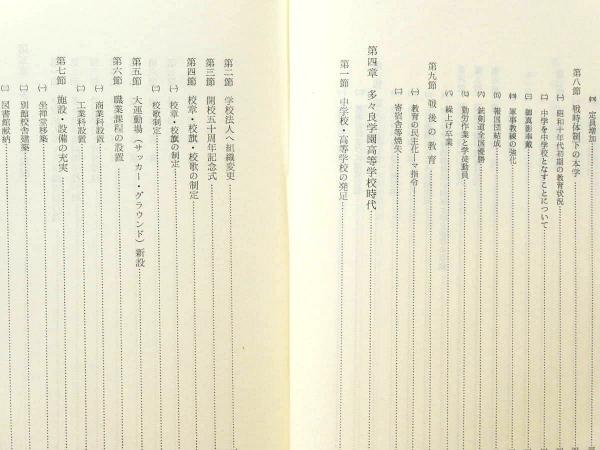 ㈣ 定員増加
第八節 戦時体制下の本学
㈠ 昭和十年代初頭の教育状況
㈡ 中学を中学校となすことについて
㈢ 御真影奉戴
㈣ 軍事教練の強化
㈤ 報国団結成
㈥ 銃剣道全国優勝
㈦ 勤労作業と学徒動員
㈧ 繰上げ卒業
第九節 戦後の教育
㈠ 教育の民主化―マ指令―
㈡ 寄宿舎等焼失
第四章 多々良学園高等学校時代
第一節 中学校・高等学校の発足
第二節 学校法人へ組織変更
第三節 開校五十周年記念式
第四節 校章・校旗・校歌の制定
㈠ 校章・校旗の制定
㈡ 校歌制定
第五節 大運動場（サッカー・グラウンド）新設
第六節 職業課程の設置
㈠ 商業科設置
㈡ 工業科設置
第七節 施設・設備の充実
㈠ 坐禅堂移築
㈡ 別館校舎建築
㈢ 図書館献納